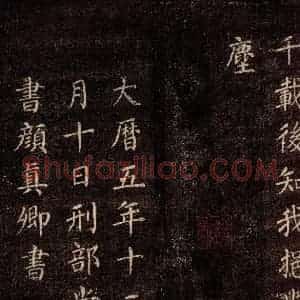 千載後知我
塵
大曆五年十
月十日刑部
書顏真卿書
Shufaziliao.com